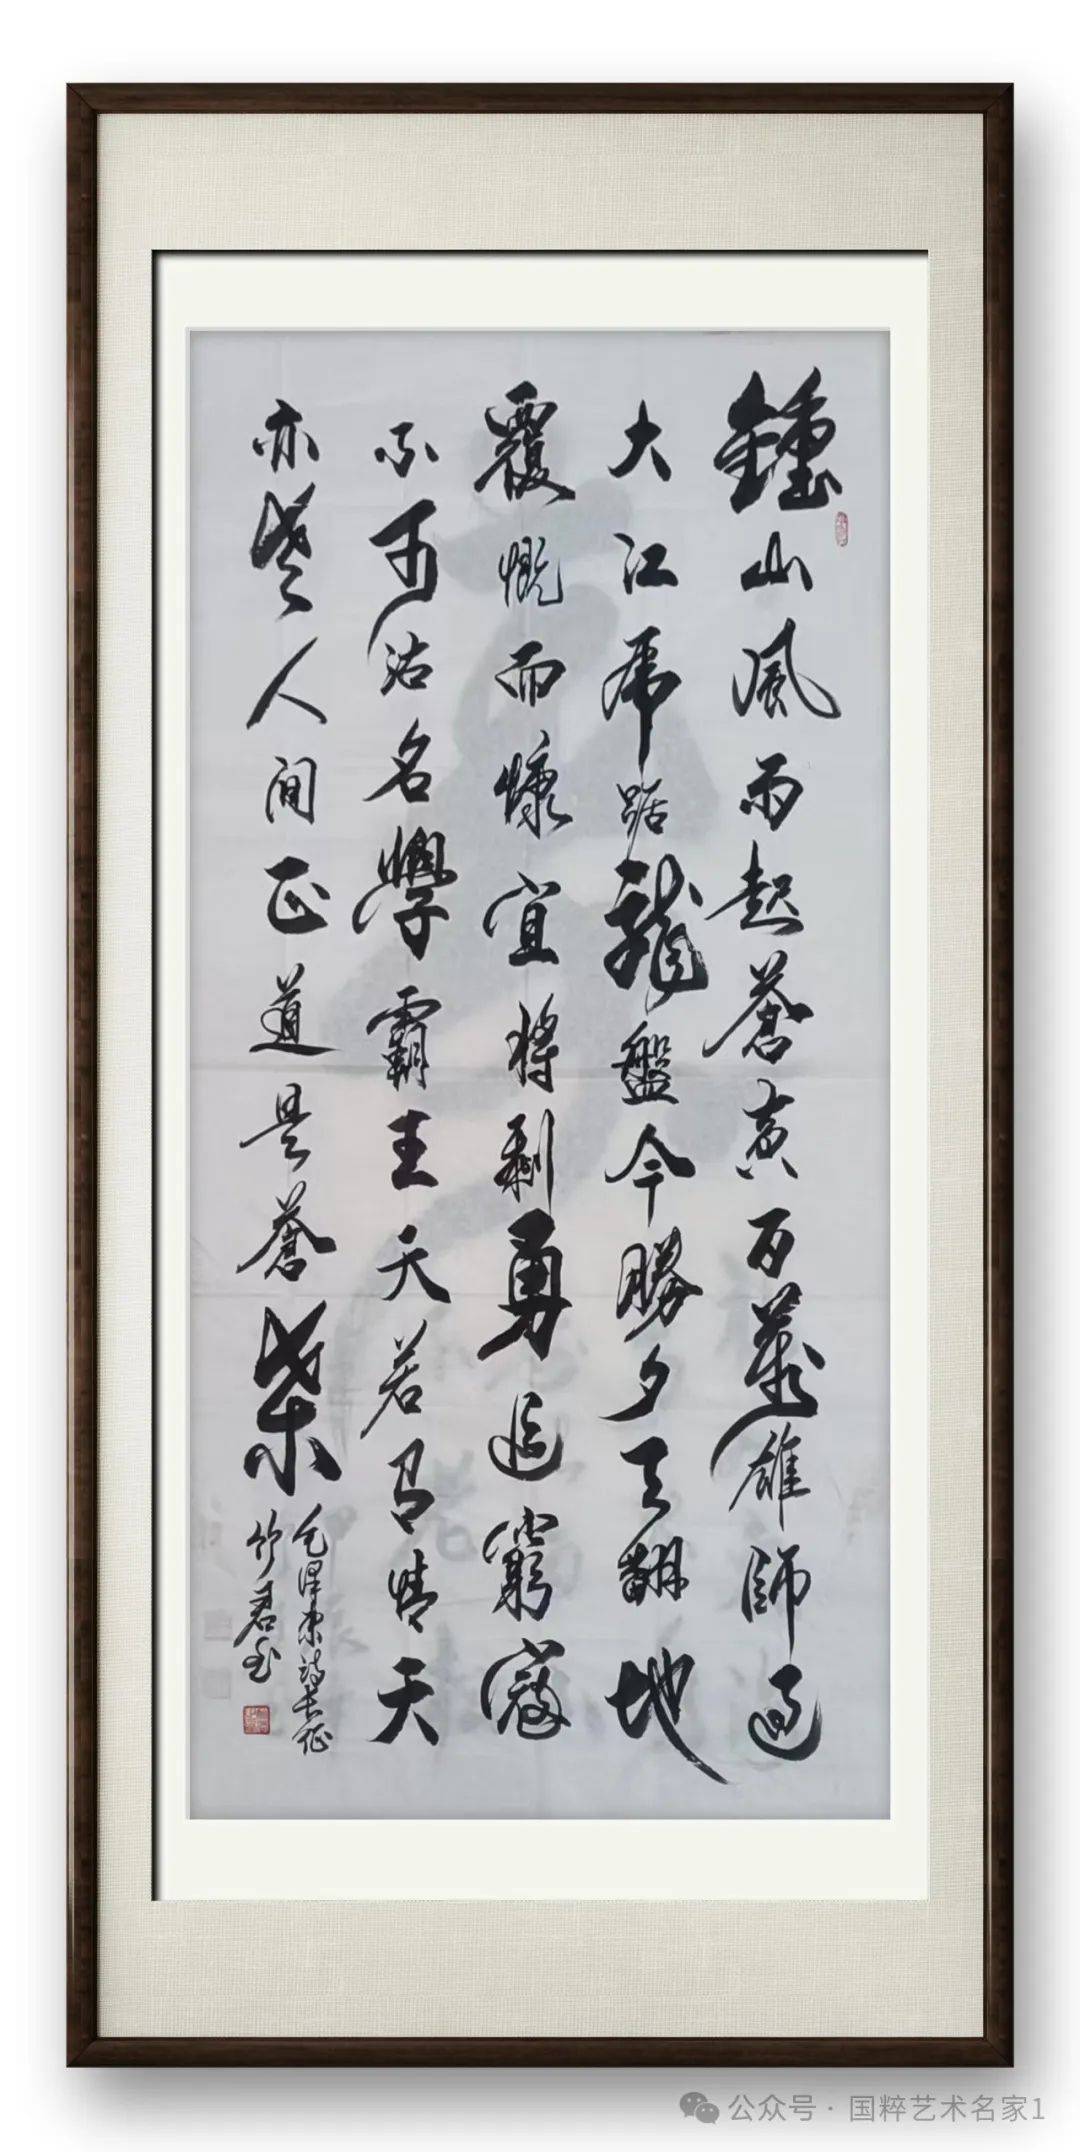 鍾山風雨起蒼黃百萬雄師過
大江虎踞龍盤今勝夕天翻地
覆慨而慷宜將剩勇追窮寇
不可沽名學霸王天若有情天
亦老人間正道是蒼桑
毛澤東詩長征
竹君书
公众号 · 国粹艺术名家1